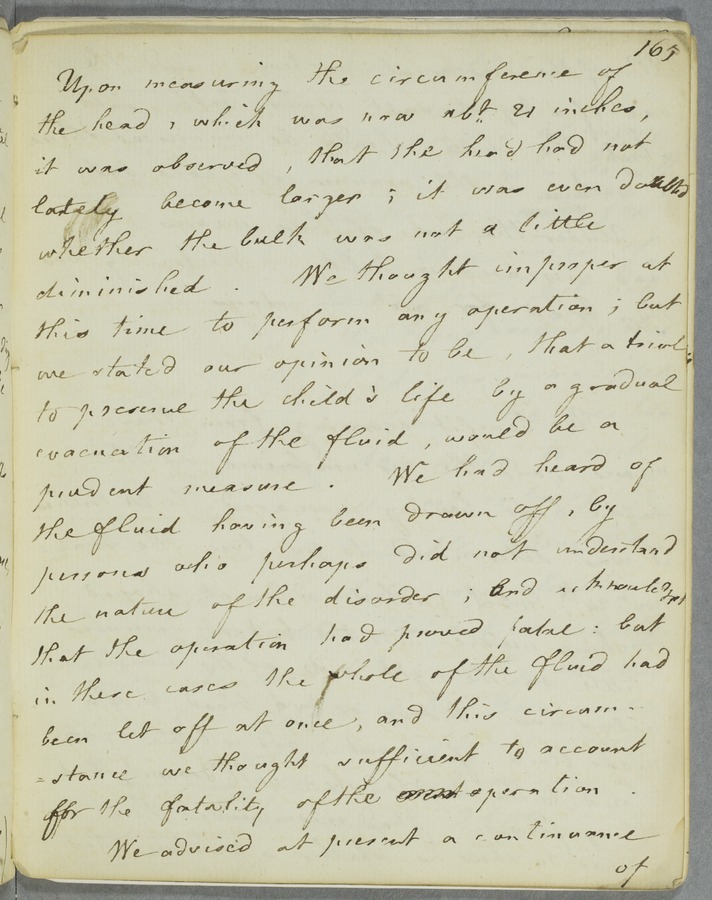 165
Upon measuring the circumference of
the head, which was now abt. 21 inches,
it was observed, that the head had not
lately become larger; it was even doubted
whether the bulk was not a little
diminished. We thought improper at
this time to perform any operation; but
we stated our opinion to be, that a trial
to preserve the child's life by a gradual
evacuation of the fluid, would be a
prudent measure. We had heard of
the fluid having been drawn off, by
persons who perhaps did not understand
the nature of the disorder; and acknowledged
that the operation had proved fatal: but
in these cases the whole of the fluid had
been let off at once, and this circum-
=stance we thought sufficient to account
for the fatality of the operation.
We advised at present a continuance
of